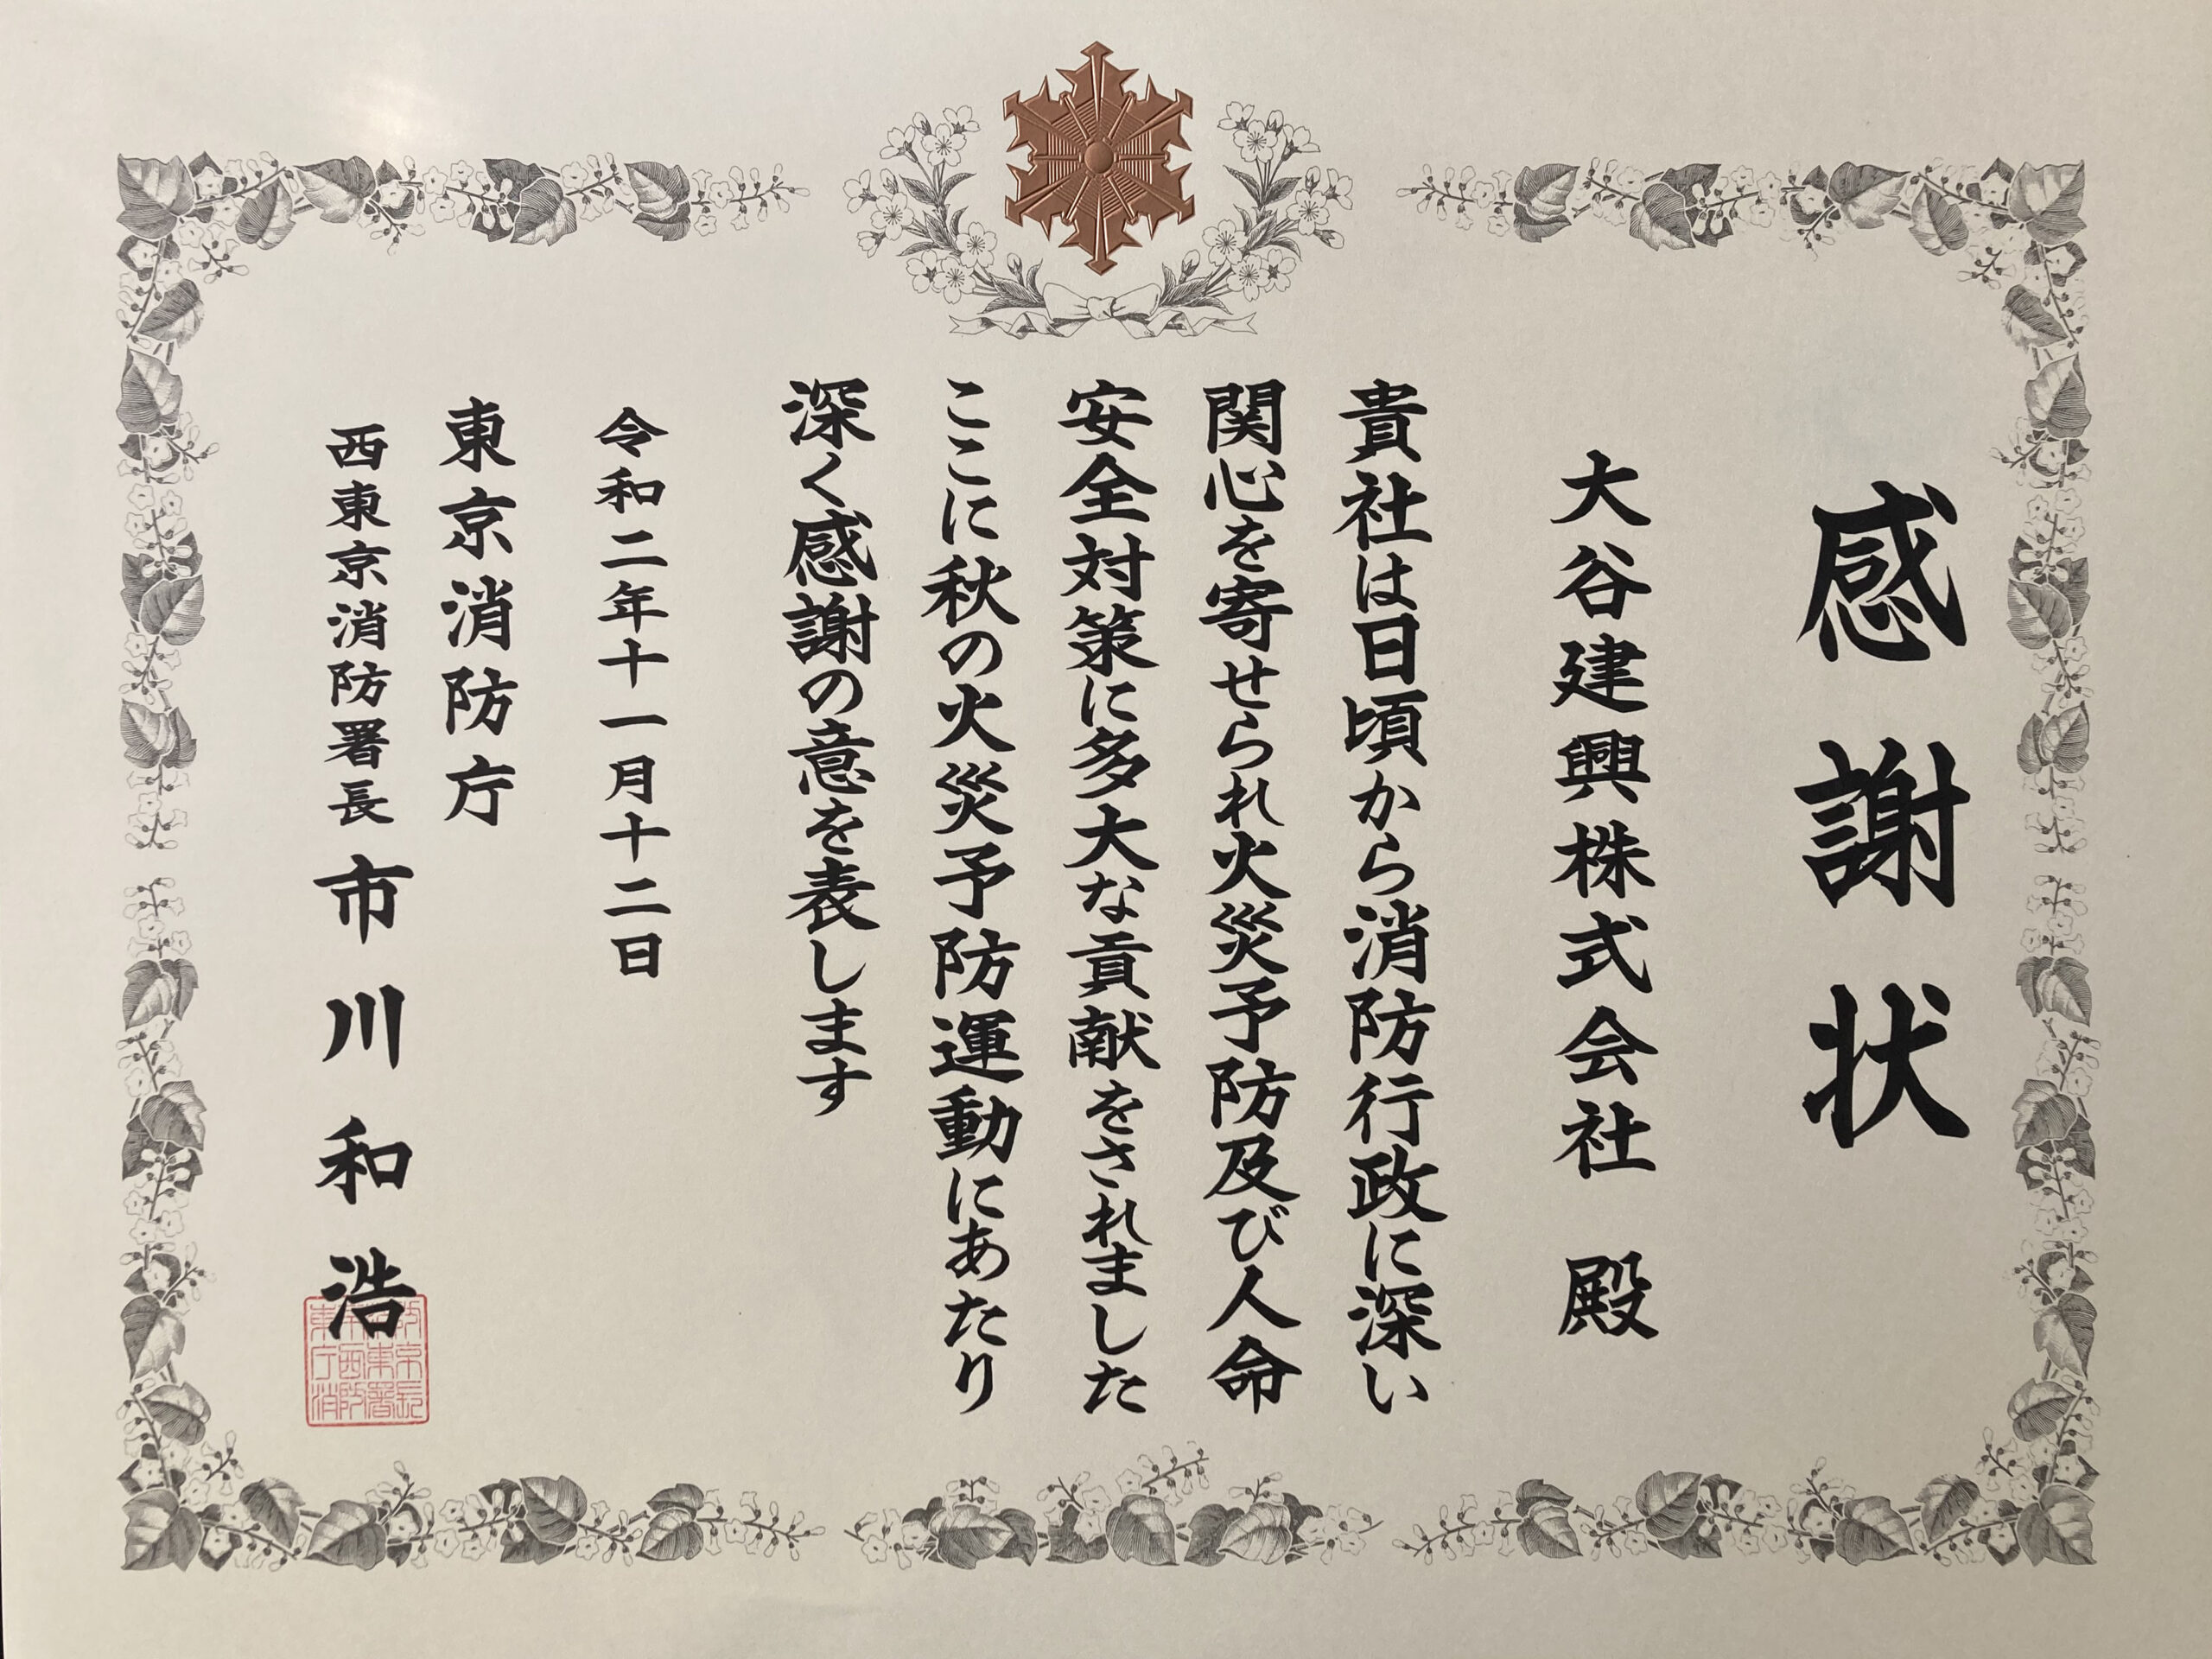 感謝状
大谷建興株式会社 殿
貴社は日頃から消防行政に深い
関心を寄せられ火災予防及び人命
安全対策に多大な貢献をされました
ここに秋の火災予防運動にあたり
深く感謝の意を表します
令和二年十一月十二日
東京消防庁
西東京消防署長 市川和浩